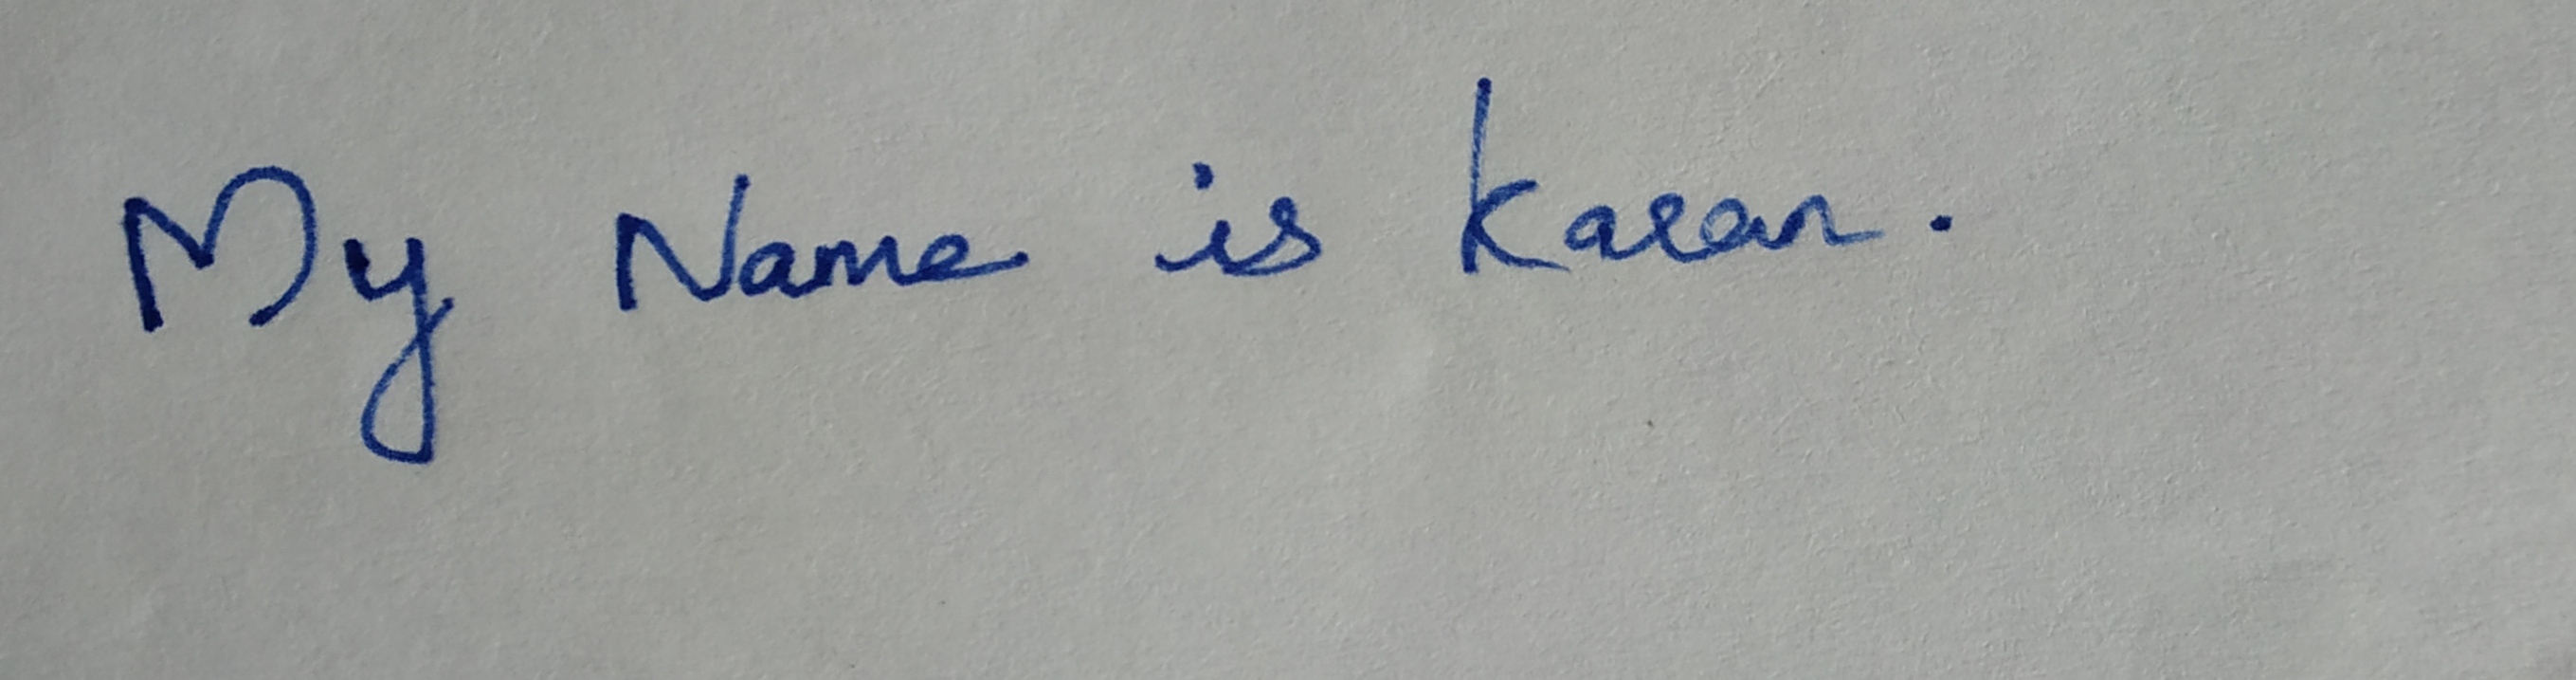 My Name is Karan.